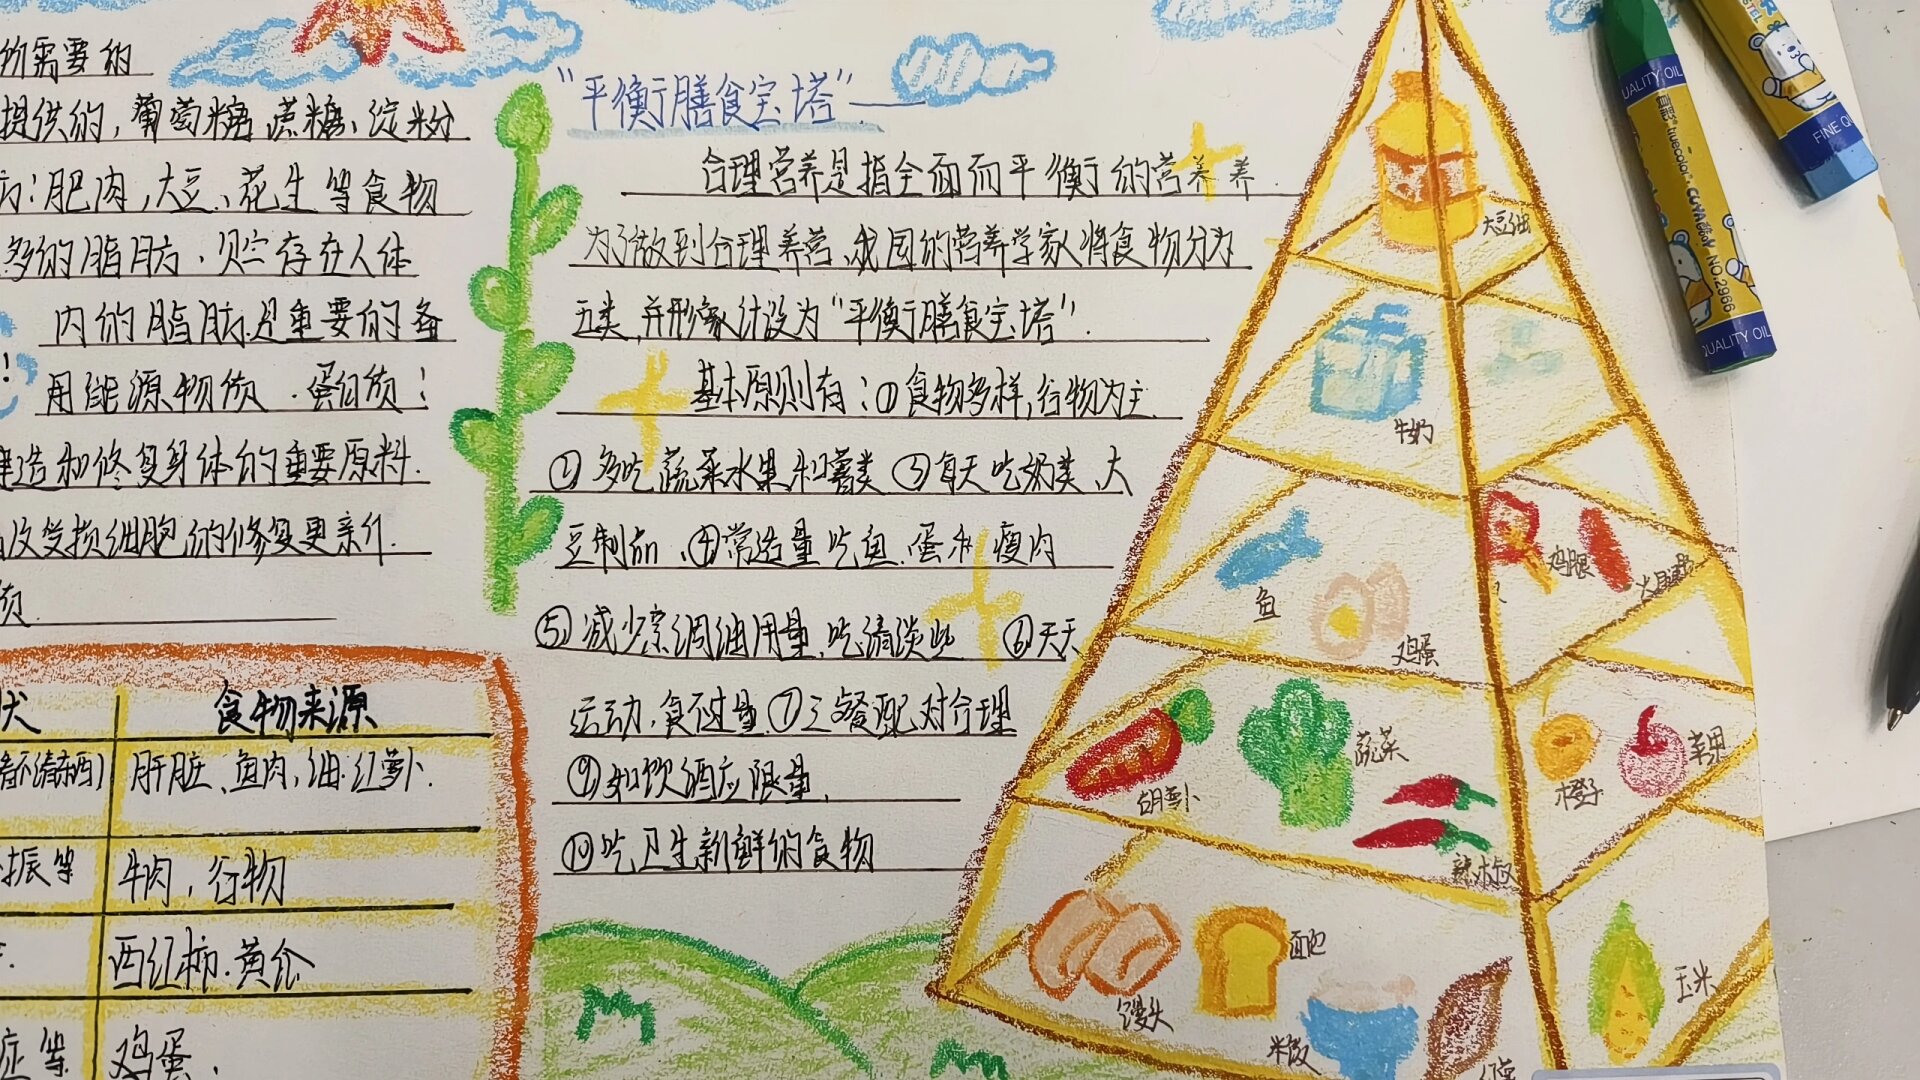 需要的
提供的，葡萄糖、蔗糖、淀粉
：肥肉，大豆、花生等食物
多的脂肪、贮存在人体
内的脂肪是重要的备
用能源物质．蛋白质：
造和修复身体的重要原料．
及受损细胞的修复更新
质．
食物来源
肝脏、鱼肉，油．红萝卜．
振等 牛肉，谷物
西红柿．黄
症等 鸡蛋．
"平衡膳食宝塔"——
合理营养是指全面而平衡的营养
为了做到合理养营、我国的营养学家将食物分为
五类，并形象计设为"平衡膳食宝塔"．
基本原则有：①食物多样，谷物为主．
②多吃蔬菜水果和薯类 ③每天吃奶类、大
豆制品、④常适量吃鱼．蛋和瘦肉
⑤减少烹调油用量，吃清淡些 ⑥天天
运动，食不过量⑦三餐配对合理
⑨如饮酒应限量，
⑩吃卫生新鲜的食物
大豆油
牛奶
鱼
鸡蛋
鸡腿
胡萝卜
蔬菜
辣椒
橙子
苹果
馒头
面包
米饭
玉米
QUALITY OIL
truecolor
NO.2966
QUALITY OIL
FINE